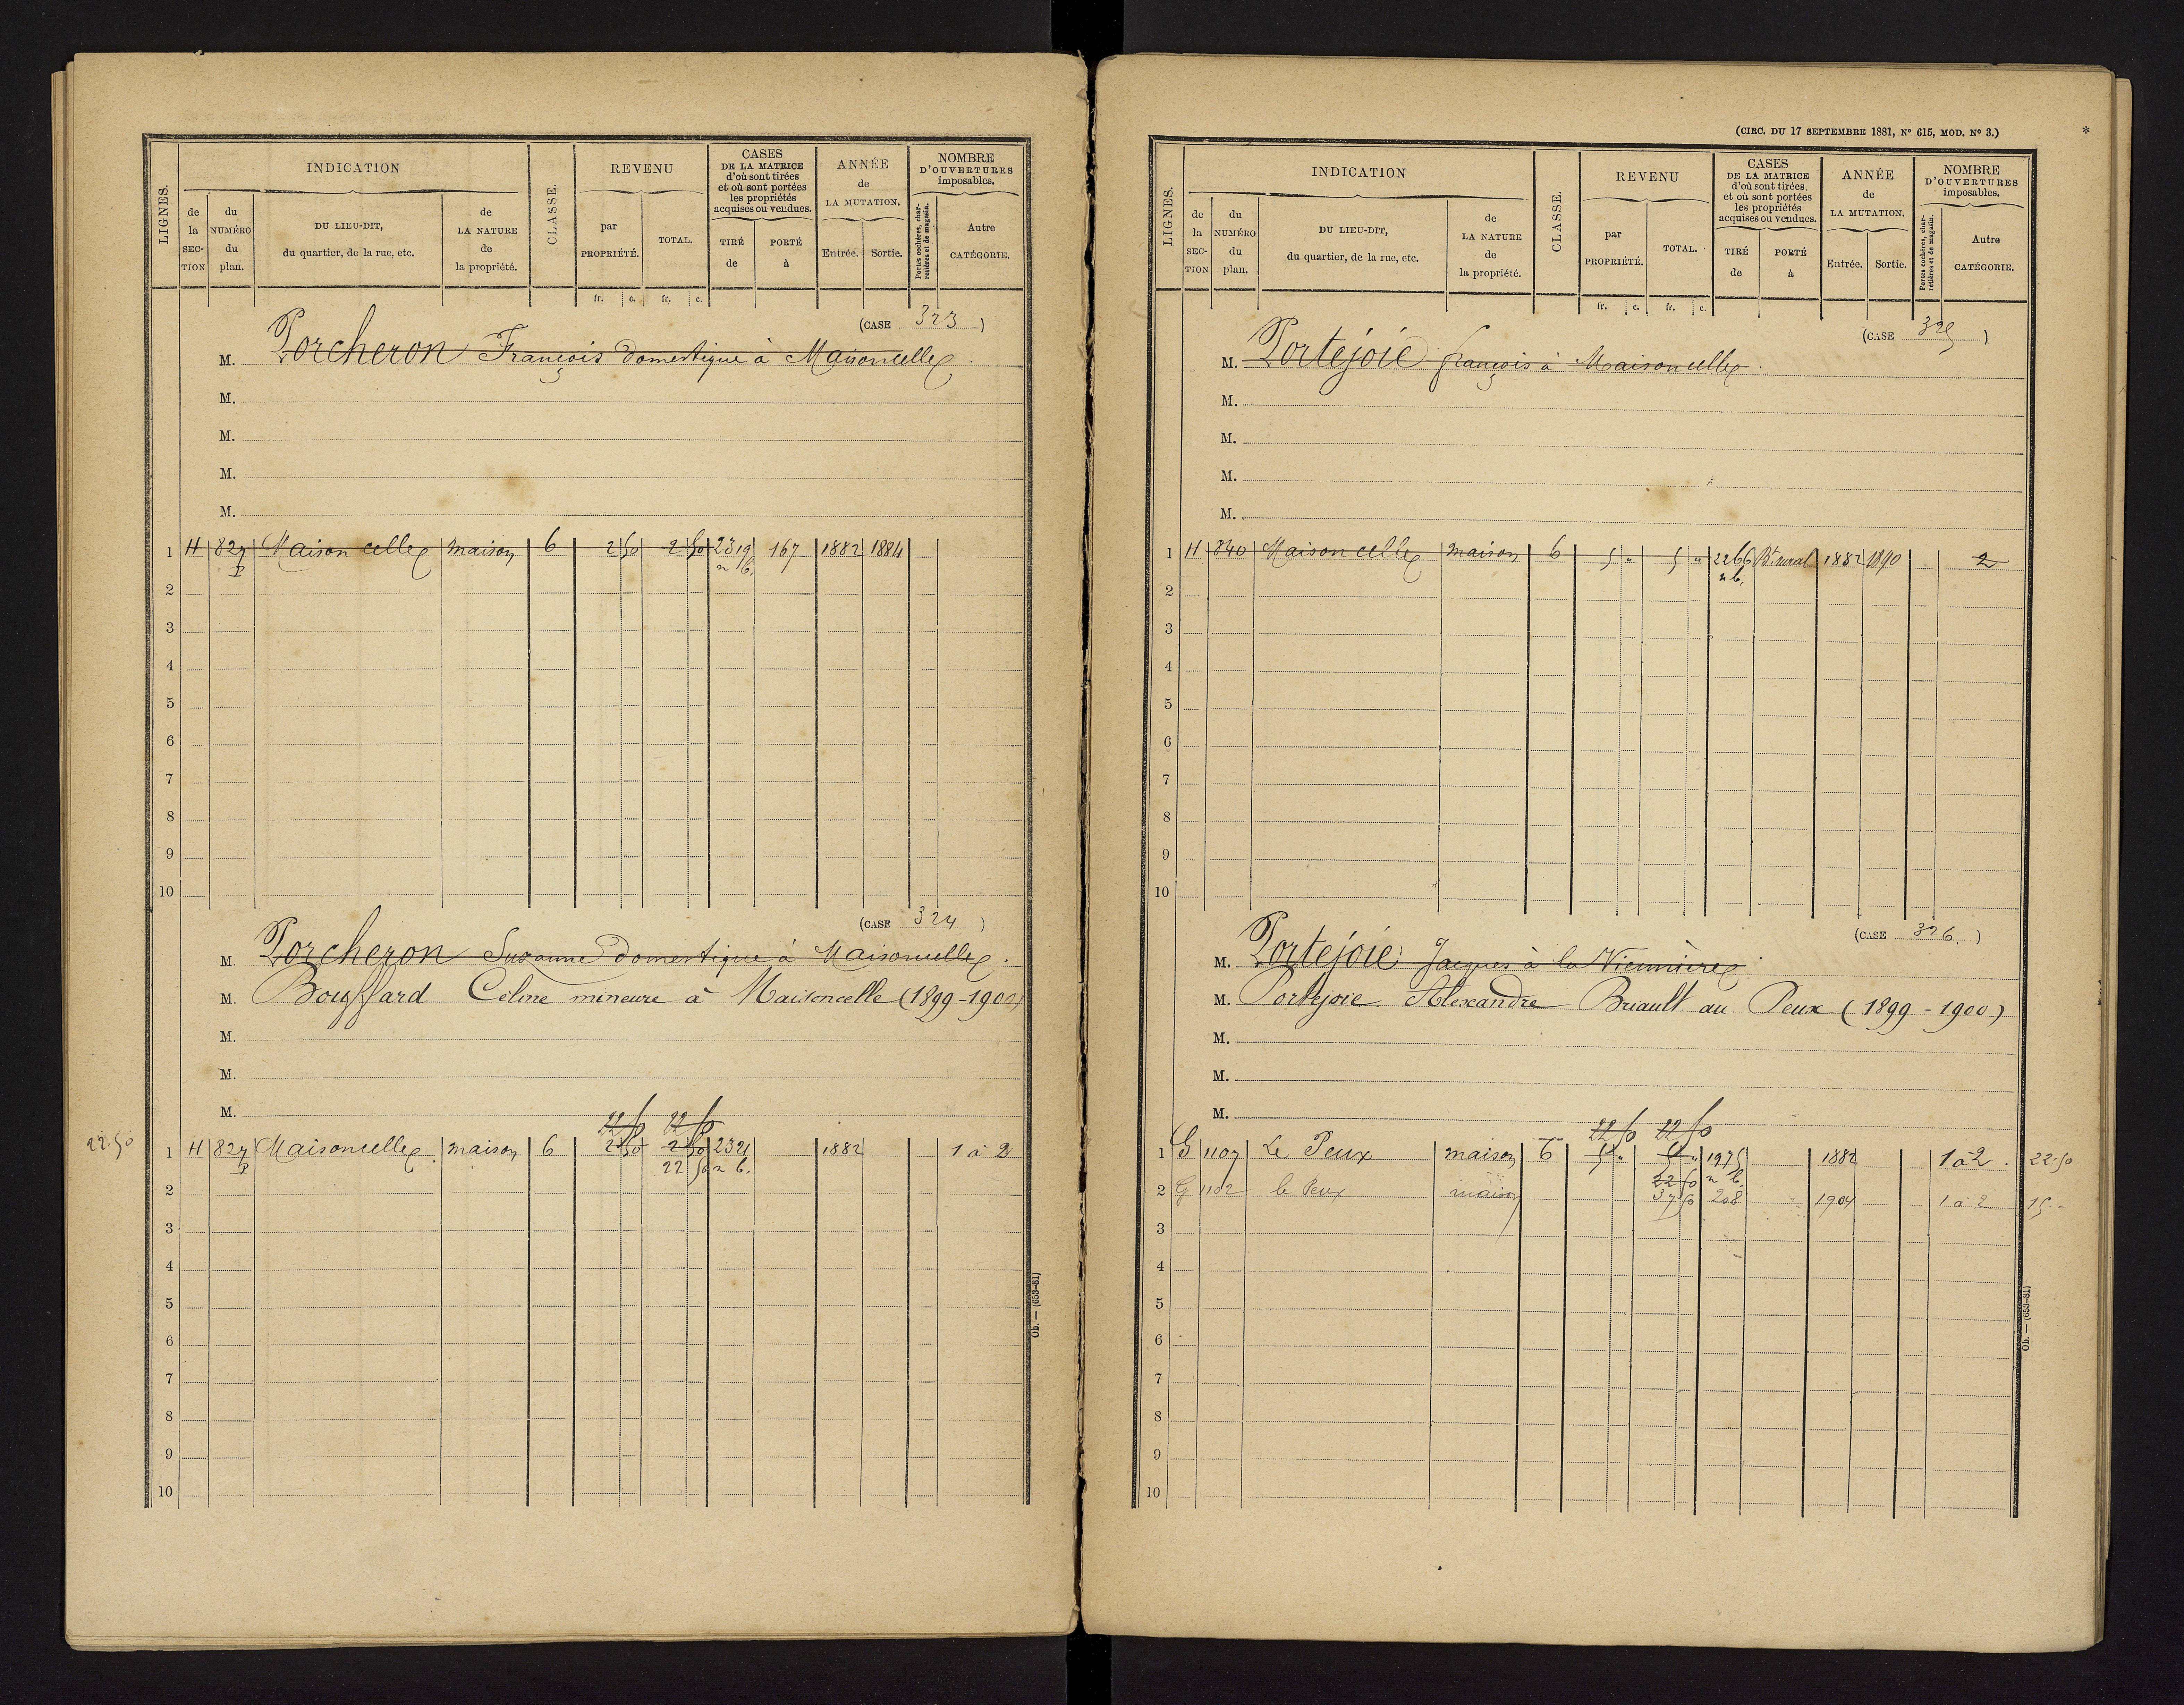 INDICATION
REVENU
CASES
DE LA MATRICE
d'où sont tirées
et où sont portées
les propriétés
acquises ou vendues.
ANNÉE
de
LA MUTATION.
NOMBRE
D'OUVERTURES
imposables.
LIGNES.
de la SECTION
du NUMÉRO du plan.
DU LIEU-DIT,
du quartier, de la rue, etc.
de LA NATURE de la propriété.
CLASSE.
par PROPRIÉTÉ.
TOTAL.
TIRÉ de
PORTÉ à
Entrée.
Sortie.
Portes cochères, charretières et de magasin.
Autre CATÉGORIE.
fr. c. fr. c.
(CASE 323)
M. Porcheron François domestique à Maisoncelles.
M.
M.
M.
M.
1 H 827 Maisoncelles maison 6 2 50 2 50 2319 167 1882 1884
P n b.
2
3
4
5
6
7
8
9
10
(CASE 324)
M. Porcheron Suzanne domestique à Maisoncelles.
M. Bouffard Céline mineure à Maisoncelle (1899-1900)
M.
M.
M.
22 50 22 50
22.50 1 H 827 Maisoncelles maison 6 2 50 2 50 2321 1882 1 à 2
P 22 50 n b.
2
3
4
5
6
7
8
9
10
Ob. — (653-81)
(CIRC. DU 17 SEPTEMBRE 1881, N° 615, MOD. N° 3.) *
INDICATION
REVENU
CASES
DE LA MATRICE
d'où sont tirées
et où sont portées
les propriétés
acquises ou vendues.
ANNÉE
de
LA MUTATION.
NOMBRE
D'OUVERTURES
imposables.
LIGNES.
de la SECTION
du NUMÉRO du plan.
DU LIEU-DIT,
du quartier, de la rue, etc.
de LA NATURE de la propriété.
CLASSE.
par PROPRIÉTÉ.
TOTAL.
TIRÉ de
PORTÉ à
Entrée.
Sortie.
Portes cochères, charretières et de magasin.
Autre CATÉGORIE.
fr. c. fr. c.
(CASE 325)
M. Portejoie françois à Maisoncelles.
M.
M.
M.
M.
1 H 840 Maisoncelles maison 6 5 " 5 " 2266 Bt. rural 1882 1890 2
n b.
2
3
4
5
6
7
8
9
10
(CASE 326.)
M. Portejoie Jacques à la
M. Portejoie Alexandre Briault au Peux (1899-1900)
M.
M.
M.
22 50 22 50
1 G 1107 Le Peux maison 6 5 " 5 " 1975 1882 1 à 2. 22.50
22 50 n b.
2 G 1102 le Peux maison 37 50 208 1904 1 à 2 15.-
3
4
5
6
7
8
9
10
Ob. — (653-81)